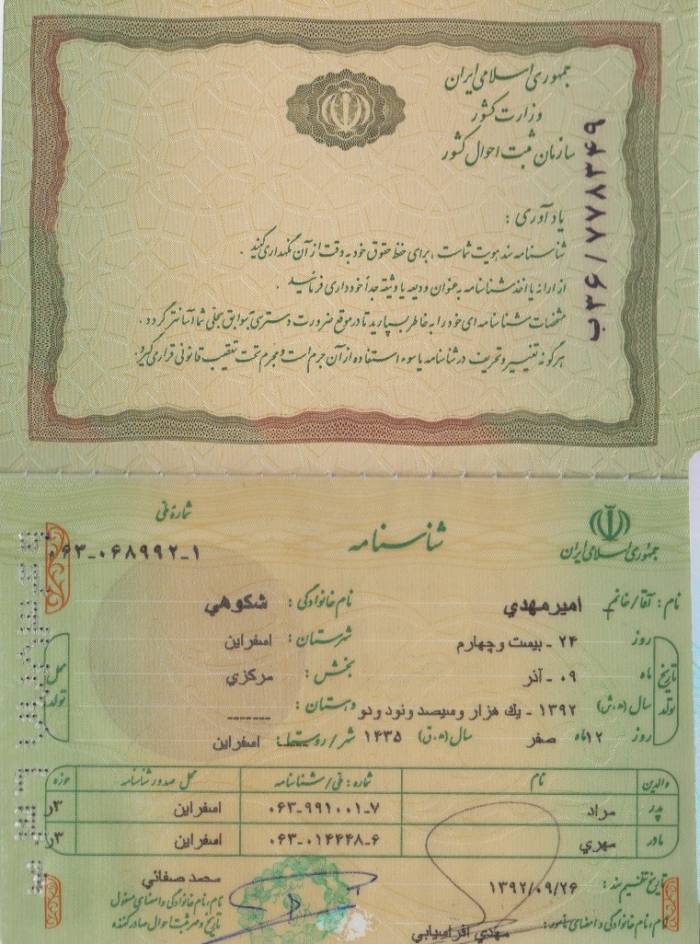 جمهوری اسلامی ایران
وزارت کشور
سازمان ثبت احوال کشور
ب۳۶/۷۷۸۳۴۹
یادآوری :
شناسنامه سند هویت شماست ، برای حفظ حقوق خود به دقت از آن نگهداری کنید .
از ارائه یا اخذ شناسنامه به عنوان ودیعه یا وثیقه جداً خودداری فرمائید .
مشخصات شناسنامه ای خود را به خاطر بسپارید تا در موقع ضرورت دسترسی به سوابق سجلی شما آسانتر گردد .
هرگونه تغییر و تحریف در شناسنامه یا سوء استفاده از آن جرم است و مجرم تحت تعقیب قانونی قرار می گیرد .
جمهوری اسلامی ایران
شناسنامه
شماره ملی
۰۶۳-۰۶۸۹۹۲-۱
نام : آقا/خانم امیرمهدی نام خانوادگی : شکوهی
تاریخ تولد
روز ۲۴ - بیست وچهارم
ماه ۰۹ - آذر
سال (ه.ش) ۱۳۹۲ - یك هزار وسیصد ونود ودو
روز ۱۲ ماه صفر سال (ه.ق) ۱۴۳۵
محل تولد
شهرستان : اسفراین
بخش : مرکزي
دهستان : -------
شهر / روستا : اسفراین
والدین نام شماره : ملی / شناسنامه محل صدور شناسنامه حوزه
پدر مراد ۰۶۳-۹۹۱۰۰۱-۷ اسفراین ۳ر
مادر مهري ۰۶۳-۰۱۴۴۴۸-۶ اسفراین ۳ر
تاریخ تنظیم سند : ۱۳۹۲/۰۹/۲۶
نام ، نام خانوادگی و امضای مأمور : مهدي افراسیابي
محمد صفائي
نام ، نام خانوادگی و امضای مسئول
تاریخ و مهر ثبت احوال صادر کننده